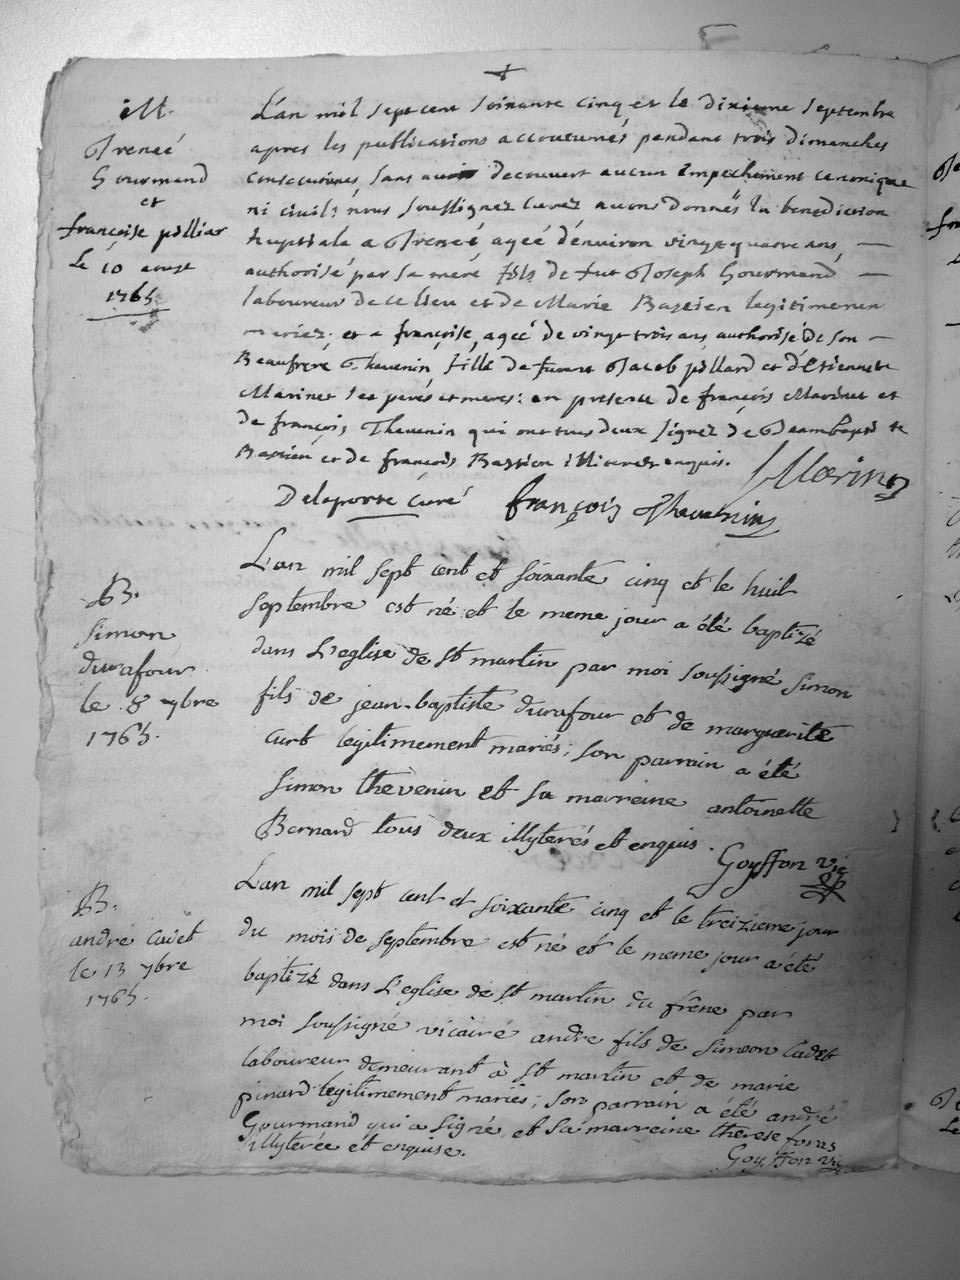 M.
Ireneé
Gourmand
et
françoise pilliar
Le 10
1765
L'an mil sept cent soixante cinq et le dixieme Septembre
apres les publications accoutumés pendant trois dimanches
consecutives, sans decouvert aucun empechement canonique
ni civil: nous soussignez curez avons donnés la benediction
nuptiale a Ireneé, ageé d'environ vingt quatre ans,
authorisé par sa meré, fils de fut Joseph Gourmand
laboureur de ce lieu et de Marie Bastien legitimement
mariez, et a françoise, ageé de vingt trois ans, authorisé de son
Beaufrere Thevenin, fille de furent Jacob pillard et d'Etiennette
Marinet ses peres et meres: en presence de françois Marinet et
de françois Thevenin qui ont tous deux signez de Jeambaptiste
Bastien et de françois Bastion illiterez enquis.
Marinet
Delaporte curé françois Thevenin
B.
simon
durafour
le 8 7bre
1765.
L'an mil sept cent et soixante cinq et le huit
septembre est né et le meme jour a été baptizé
dans L'eglise de st martin par moi soussigné simon
fils de jean-baptiste durafour et de marguerite
curt legitimement mariés; son parrain a été
simon thevenin et sa marreine antoinette
Bernard tous deux illyterés et enquis.
Goyffon vic
B.
andré cadet
le 13 7bre
1765.
L'an mil sept cent et soixante cinq et le treizieme jour
du mois de septembre est né et le meme jour a été
baptizé dans L'eglise de st martin du frêne par
moi soussigné vicaire andre fils de simeon Cadet
laboureur demeurant à st martin et de marie
pinard legitimement mariés; son parrain a été andré
Gourmand qui a signé et sa marreine therese foras
illyterée et enquise.
Goyffon vic